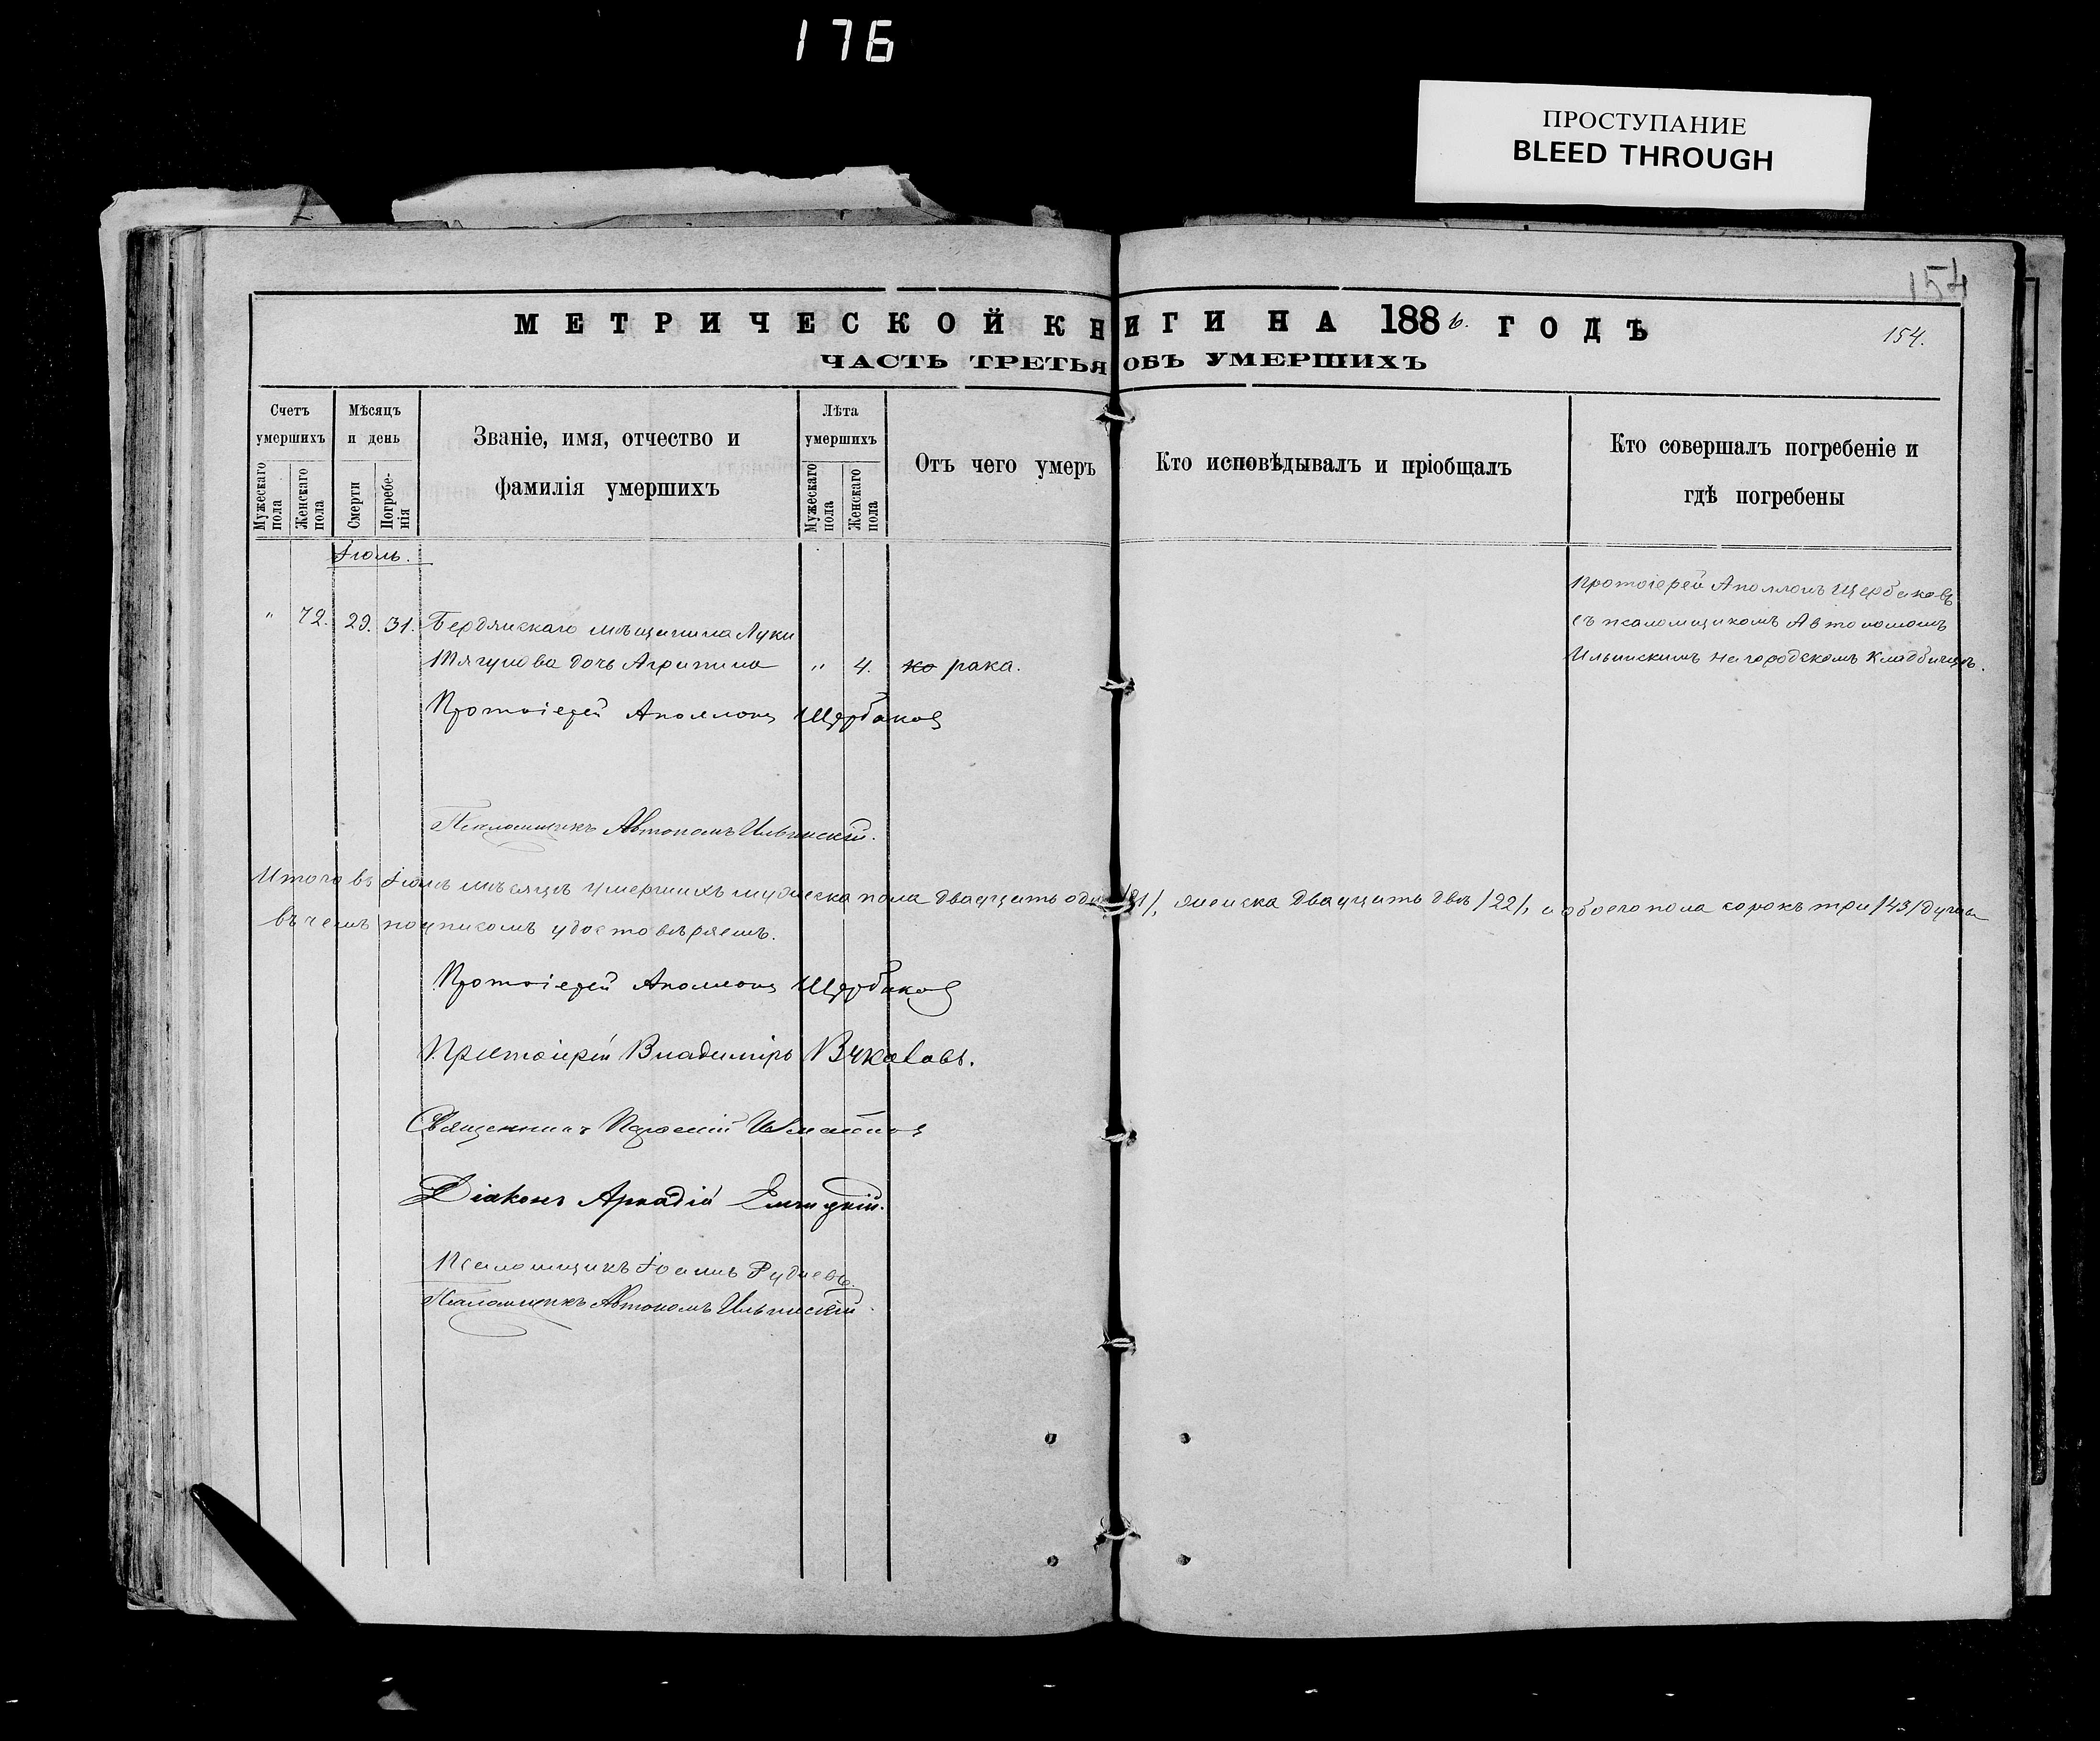 176
ПРОСТУПАНИЕ
BLEED THROUGH
154
МЕТРИЧЕСКОЙ КНИГИ НА 1886. ГОДЪ
154.
ЧАСТЬ ТРЕТЬЯ ОБЪ УМЕРШИХЪ
Счетъ умершихъ
Мужескаго пола
Женскаго пола
Мѣсяцъ и день
Смерти
Погребе-нія
Званіе, имя, отчество и фамилія умершихъ
Лѣта умершихъ
Мужескаго пола
Женскаго пола
Отъ чего умеръ
Кто исповѣдывалъ и пріобщалъ
Кто совершалъ погребеніе и гдѣ погребены
Іюль.
" 72. 29. 31. Бердянскаго мѣщанина Луки
Тягунова дочь Агрипина " 4. ко рака.
Протоіерей Аполлонъ Щербаковъ
съ псаломщикомъ Автономомъ
Ильинскимъ на городскомъ кладбищѣ.
Протоіерей Аполлонъ Щербаковъ
Псаломщикъ Автономъ Ильинскій.
Итого въ Іюлѣ мѣсяцѣ умершихъ мужеска пола двадцать одна /21/, женска двадцать двѣ /22/, а обоего пола сорокъ три /43/ души
въ чемъ подписомъ удостовѣряемъ.
Протоіерей Аполлонъ Щербаковъ
Протоіерей Владиміръ
Священникъ
Діаконъ Аркадій
Псаломщикъ Іоаннъ Рудневъ.
Псаломщикъ Автономъ Ильинскій.